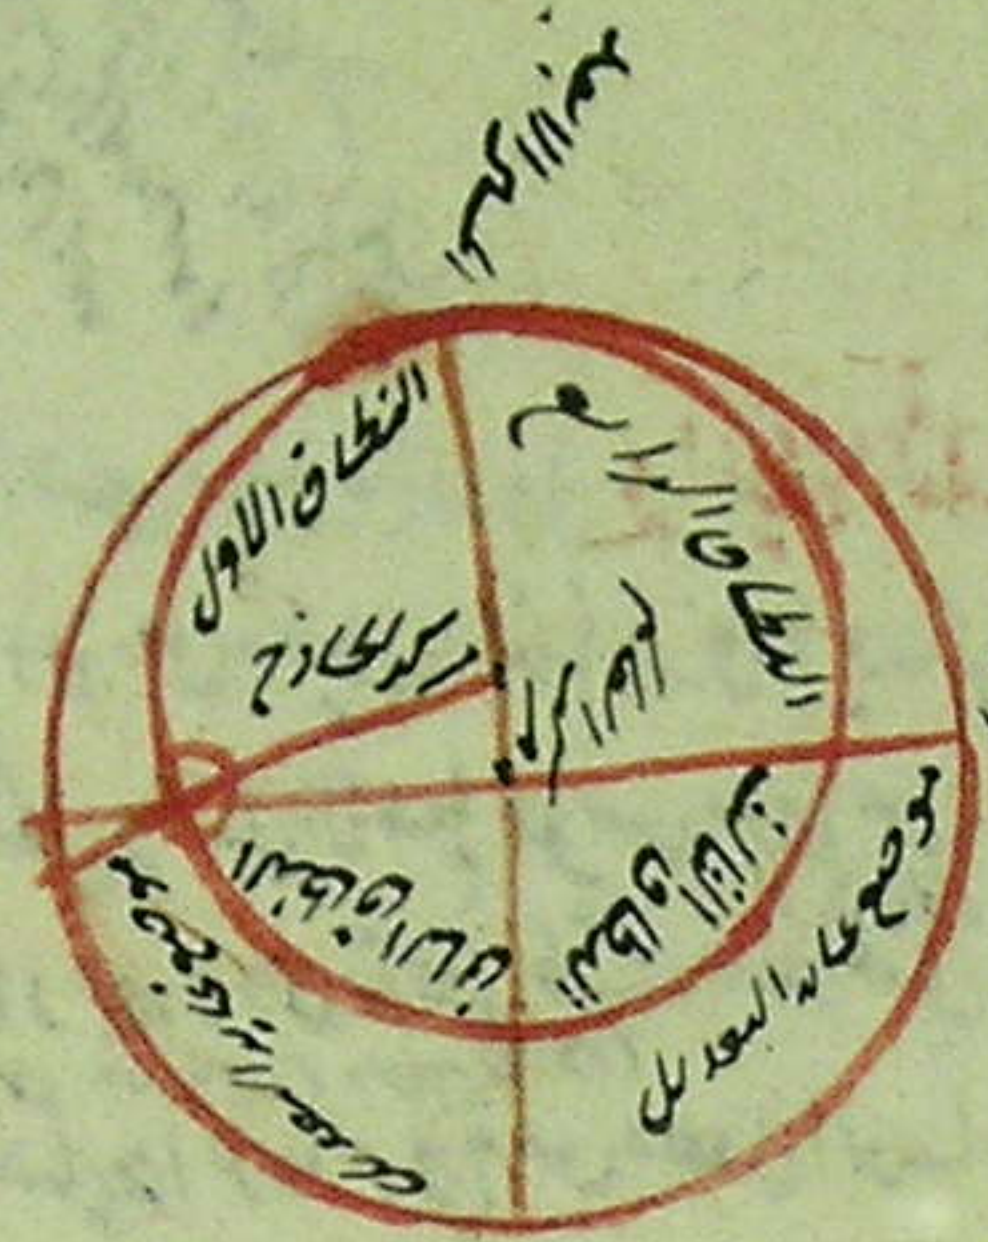 النطاق الاول
النطاق الرابع
مركز الخارج
النطاق الثاني
النطاق الثالث
موضع غاية التعديل
موضع غاية التعديل